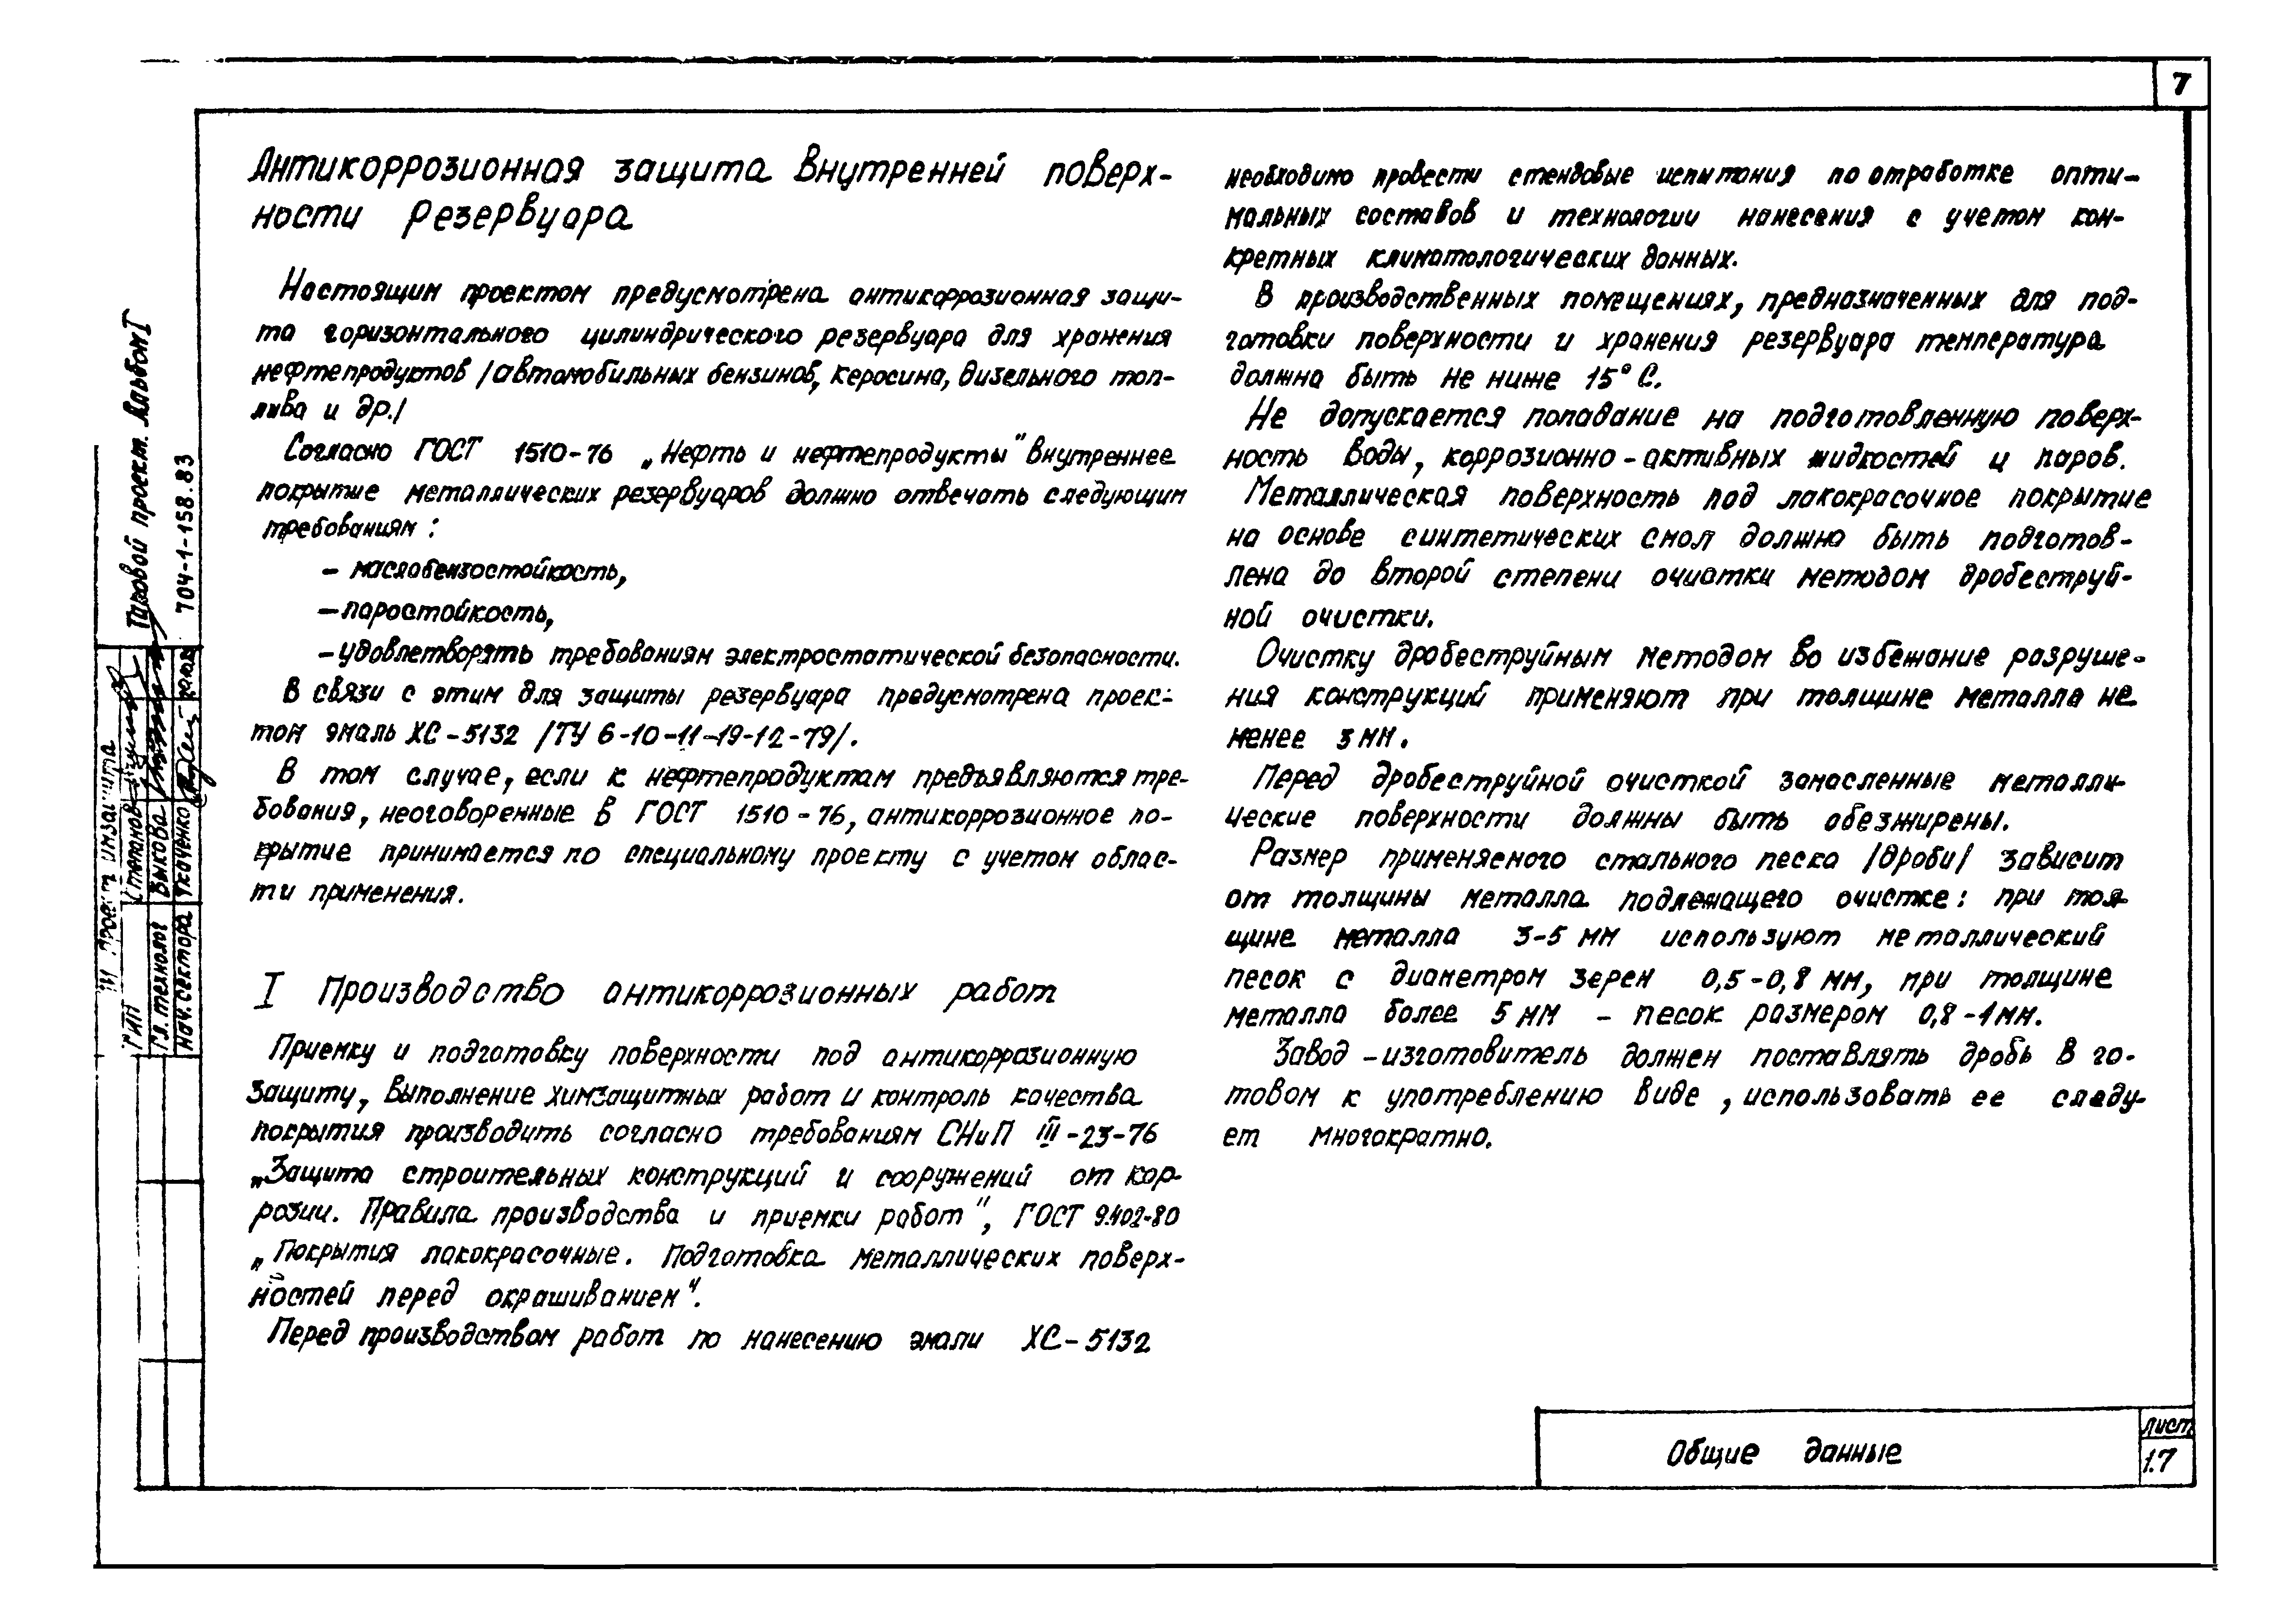 7
Антикоррозионная защита внутренней поверх-
ности резервуара
Настоящим проектом предусмотрена антикоррозионная защи-
та горизонтального цилиндрического резервуара для хранения
нефтепродуктов /автомобильных бензинов, керосина, дизельного топ-
лива и др./
Согласно ГОСТ 1510-76 „Нефть и нефтепродукты" внутреннее
покрытие металлических резервуаров должно отвечать следующим
требованиям:
- маслобензостойкость,
- паростойкость,
- удовлетворять требованиям электростатической безопасности.
В связи с этим для защиты резервуара предусмотрена проек-
том эмаль ХС-5132 /ТУ 6-10-11-19-12-79/.
В том случае, если к нефтепродуктам предъявляются тре-
бования, неоговоренные в ГОСТ 1510-76, антикоррозионное по-
крытие принимается по специальному проекту с учетом облас-
ти применения.
I Производство антикоррозионных работ
Приемку и подготовку поверхности под антикоррозионную
защиту, выполнение химзащитных работ и контроль качества
покрытия производить согласно требованиям СНиП III-23-76
„Защита строительных конструкций и сооружений от кор-
розии. Правила производства и приемки работ", ГОСТ 9.402-80
„Покрытия лакокрасочные. Подготовка металлических поверх-
ностей перед окрашиванием".
Перед производством работ по нанесению эмали ХС-5132
необходимо провести стендовые испытания по отработке опти-
мальных составов и технологии нанесения с учетом кон-
кретных климатологических данных.
В производственных помещениях, предназначенных для под-
готовки поверхности и хранения резервуара температура
должна быть не ниже 15°С.
Не допускается попадание на подготовленную поверх-
ность воды, коррозионно-активных жидкостей и паров.
Металлическая поверхность под лакокрасочное покрытие
на основе синтетических смол должна быть подготов-
лена до второй степени очистки методом дробеструй-
ной очистки.
Очистку дробеструйным методом во избежание разруше-
ния конструкций применяют при толщине металла не
менее 3 мм.
Перед дробеструйной очисткой замасленные металли-
ческие поверхности должны быть обезжирены.
Размер применяемого стального песка /дроби/ зависит
от толщины металла подлежащего очистке: при тол-
щине металла 3-5 мм используют металлический
песок с диаметром зерен 0,5-0,8 мм, при толщине
металла более 5 мм - песок размером 0,8-1мм.
Завод-изготовитель должен поставлять дробь в го-
товом к употреблению виде, использовать ее следу-
ет многократно.
Типовой проект. Альбом I
704-1-158.83
ГИП Степанов
Гл. технолог Быкова
Нач. сектора Ткаченко
Общие данные
лист
1.7